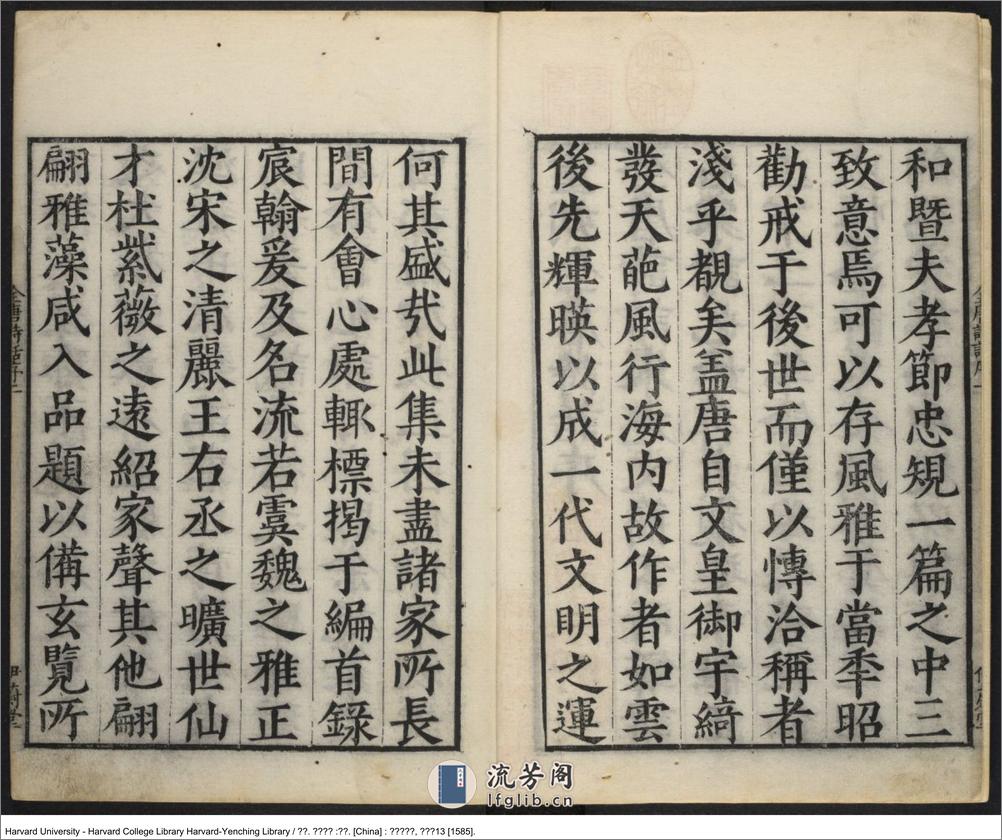 和暨夫孝節忠規一篇之中三
致意焉可以存風雅于當秊昭
勸戒于後世而僅以愽洽稱者
淺乎覩矣盖唐自文皇御宇綺
發天葩風行海内故作者如雲
後先輝暎以成一代文明之運
何其盛㢤此集未盡諸家所長
間有會心處輙標揭于編首錄
宸翰爰及名流若虞魏之雅正
沈宋之清麗王右丞之曠世仙
才杜紫薇之遠紹家聲其他翩
翩雅藻咸入品題以備玄覽所
流芳阁
lfglib.cn
Harvard University - Harvard College Library Harvard-Yenching Library / ??. ???? :??. [China] : ?????, ???13 [1585].